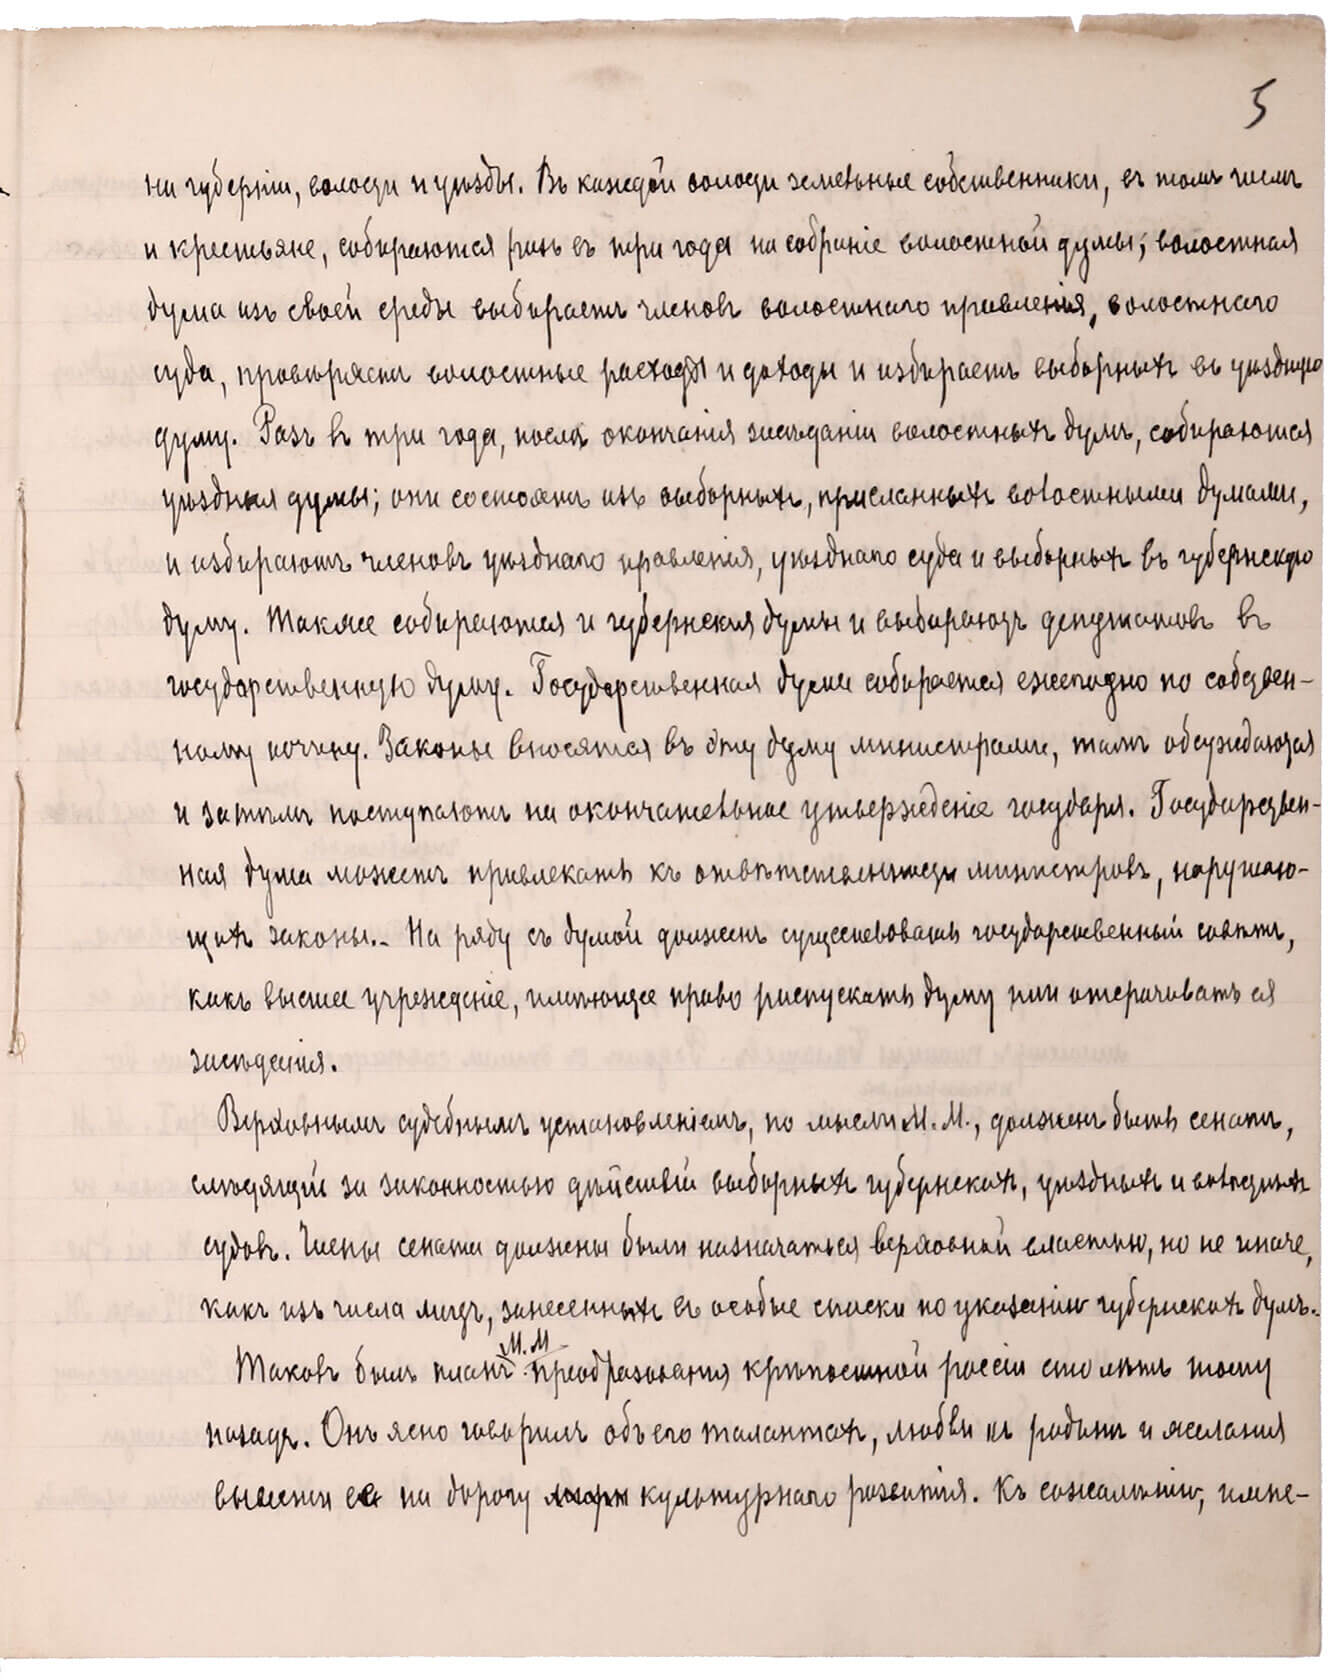 5
на губерніи, волости и уѣзды. Въ каждой волости земельные собственники, въ томъ числѣ
и крестьяне, собираются разъ въ три года на собраніе волостной думы; волостная
дума изъ своей среды выбираетъ членовъ волостнаго правленія, волостнаго
суда, провѣряетъ волостные расходы и доходы и избираетъ выборныхъ въ уѣздную
думу. Разъ въ три года, послѣ окончанія засѣданій волостныхъ думъ, собираются
уѣздныя думы; они состоятъ изъ выборныхъ, присланныхъ волостными думами,
и избираютъ членовъ уѣзднаго правленія, уѣзднаго суда и выборныхъ въ губернскую
думу. Также собираются и губернскія думы и выбираютъ депутатовъ въ
государственную думу. Государственная дума собирается ежегодно по собствен-
ному почину. Законы вносятся въ эту думу министрами, тамъ обсуждаются
и затѣмъ поступаютъ на окончательное утвержденіе государя. Государствен-
ная дума можетъ привлекать къ отвѣтственности министровъ, нарушаю-
щихъ законы.- На ряду съ думой долженъ существовать государственный совѣтъ,
какъ высшее учрежденіе, имѣющее право распускать думу или отсрочивать ея
засѣданія.
Верховнымъ судебнымъ установленіемъ, по мысли М.М., долженъ быть сенатъ,
слѣдящій за законностью дѣйствій выборныхъ губернскихъ, уѣздныхъ и волостныхъ
судовъ. Члены сената должны были назначаться верховной властью, но не иначе,
какъ изъ числа лицъ, занесенныхъ въ особые списки по указанію губернскихъ думъ.
М.М
Таковъ былъ планъ преобразованія крѣпостной россіи сто лѣтъ тому
назадъ. Онъ ясно говорилъ объ его талантахъ, любви къ родинѣ и желанія
вывести ее на дорогу культурнаго развитія. Къ сожалѣнію, импе-